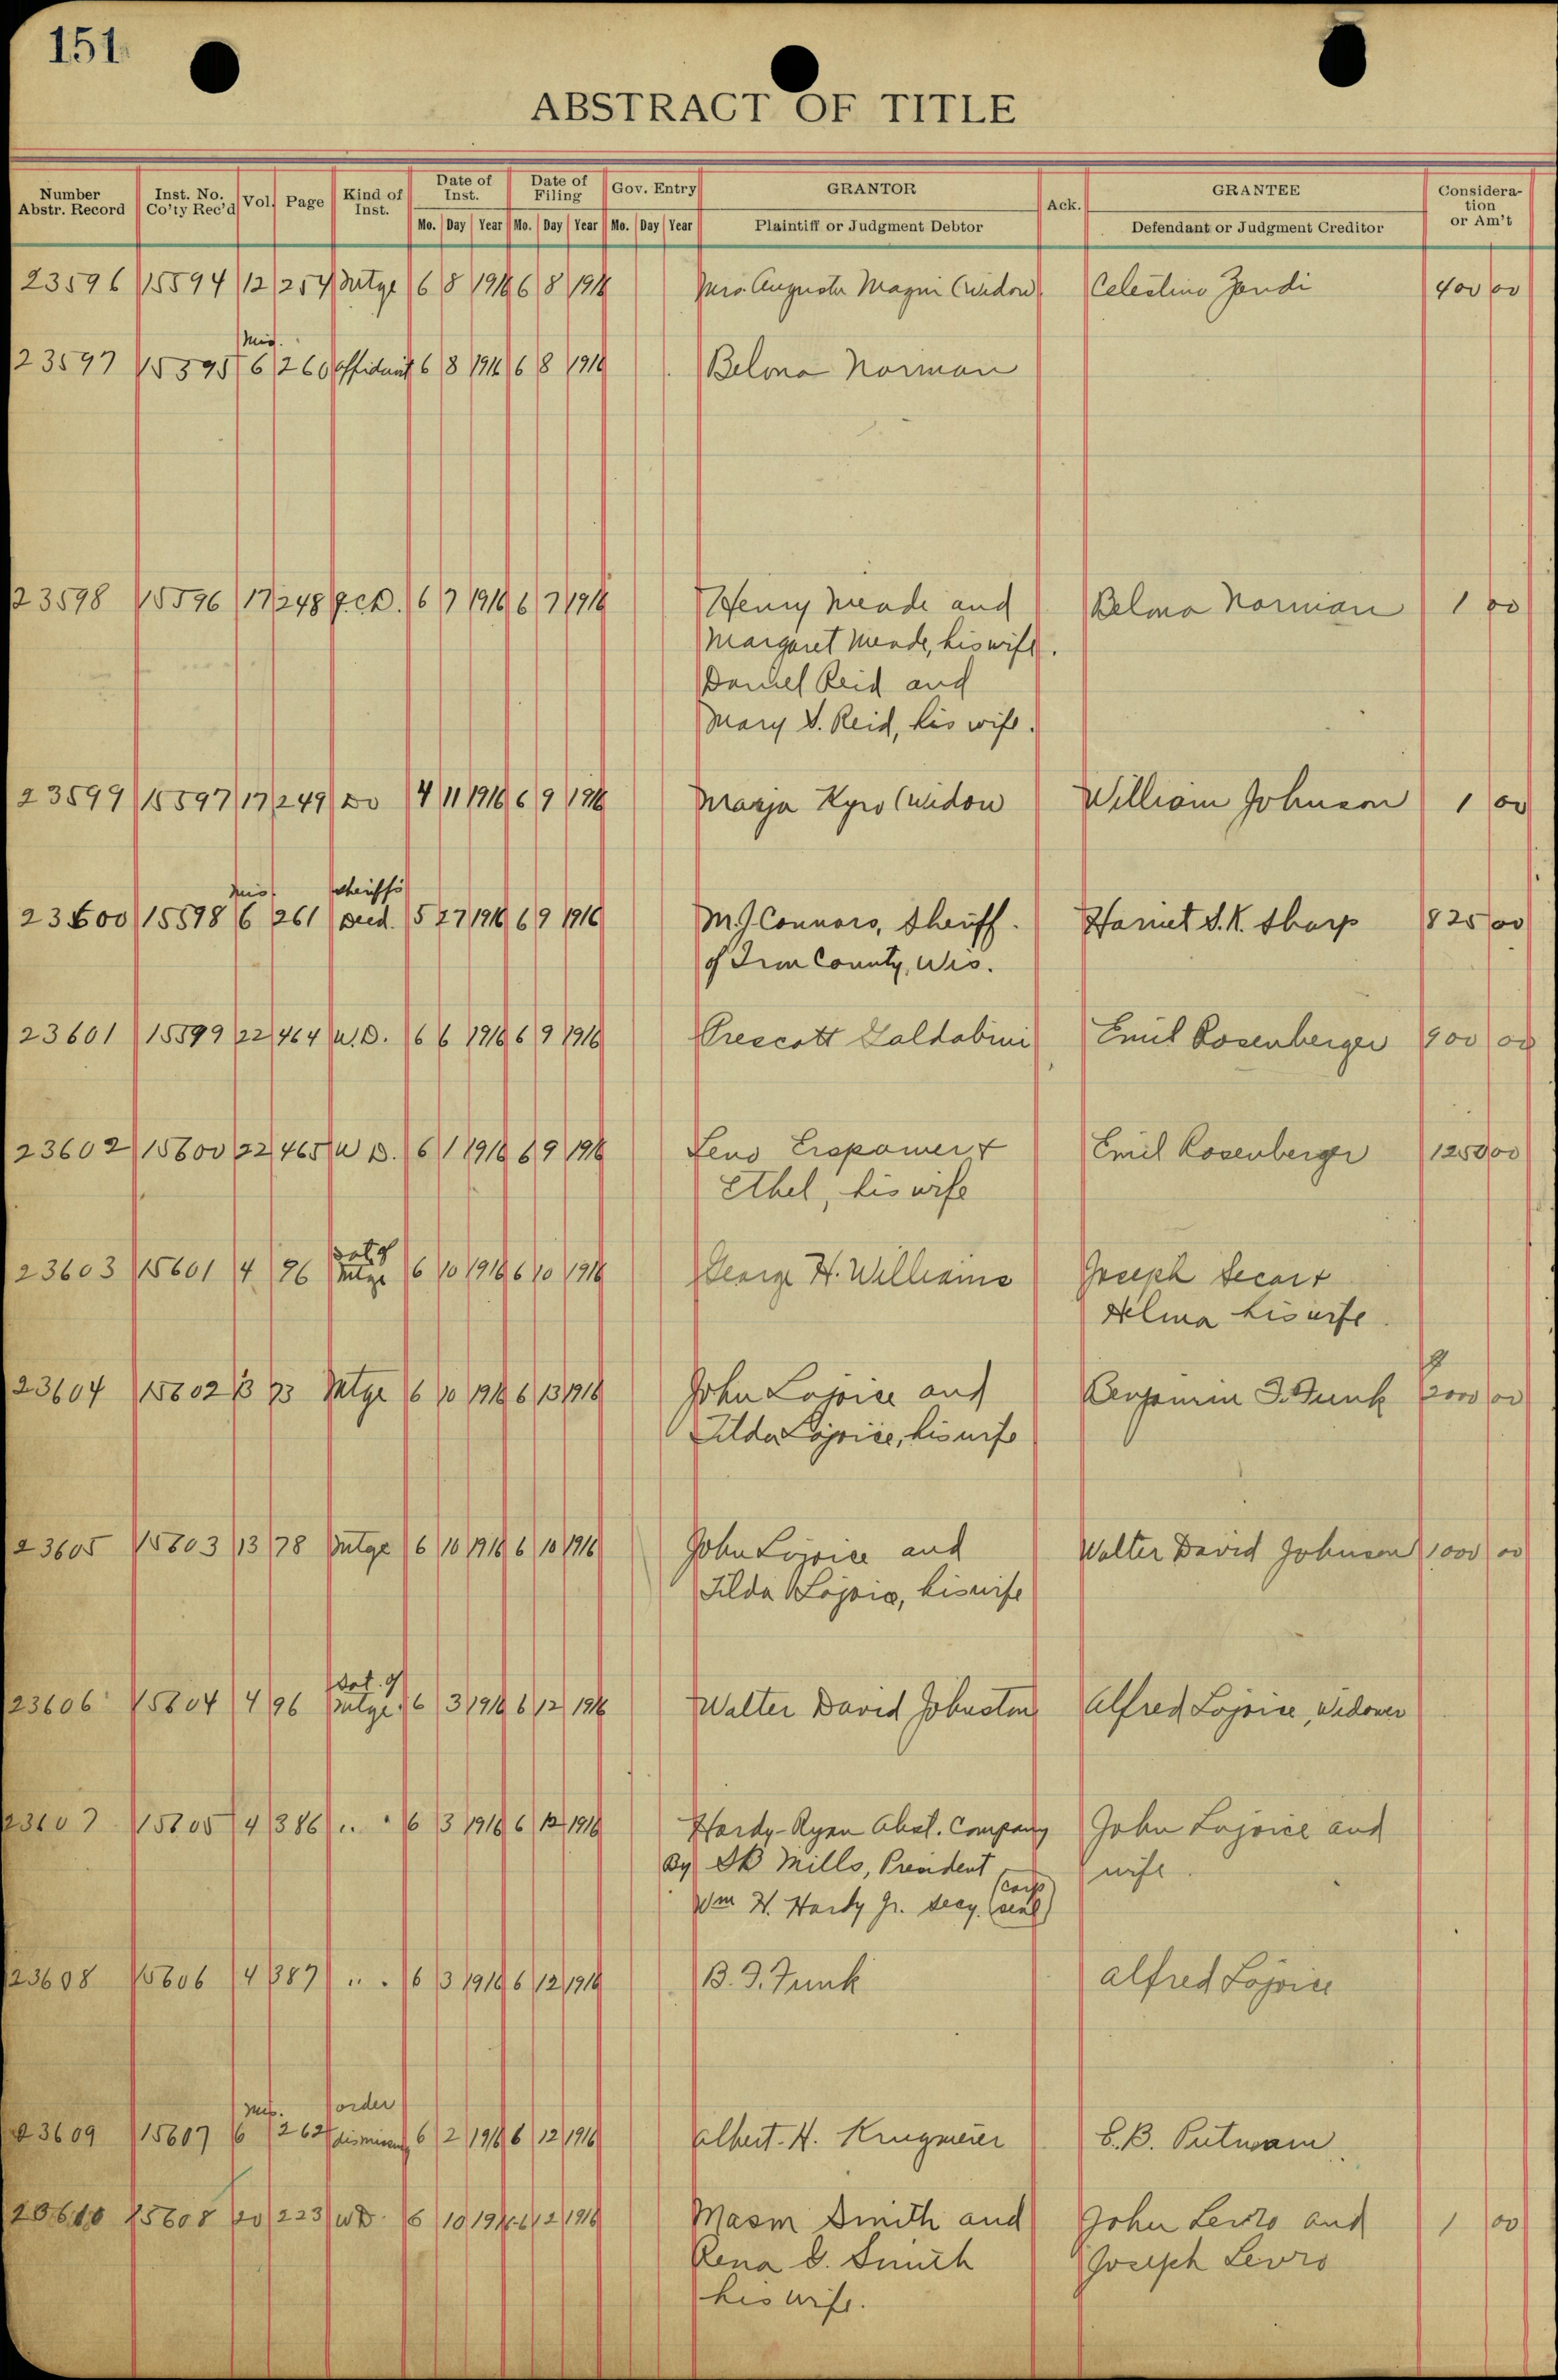 151
ABSTRACT OF TITLE
Number Abstr. Record Inst. No. Co'ty Rec'd Vol. Page Kind of Inst. Date of Inst. Date of Filing Gov. Entry GRANTOR Ack. GRANTEE Considera-tion or Am't
Mo. Day Year Mo. Day Year Mo. Day Year Plaintiff or Judgment Debtor Defendant or Judgment Creditor
23596 15594 12 254 Mtge 6 8 1916 6 8 1916 Mrs. Augusta Magni (Widow) Celestino Zandi 400 00
Mis.
23597 15595 6 260 Affidavit 6 8 1916 6 8 1916 Belona Norman
23598 15596 17 248 Q.C.D. 6 7 1916 6 7 1916 Henry Meade and Belona Norman 1 00
Margaret Meade, his wife.
Daniel Reid and
Mary S. Reid, his wife.
23599 15597 17 249 Do 4 11 1916 6 9 1916 Marja Kyro (Widow William Johnson 1 00
Mis. Sheriff's
23600 15598 6 261 Deed. 5 27 1916 6 9 1916 M.J. Connors, Sheriff. Harriet S.K. Sharp 825 00
of Iron County, Wis.
23601 15599 22 464 W.D. 6 6 1916 6 9 1916 Prescott Galdabini Emil Rosenberger 900 00
23602 15600 22 465 W D. 6 1 1916 6 9 1916 Leno Erspamer + Emil Rosenberger 1250 00
Ethel, his wife
Sat. of
23603 15601 4 96 Mtge 6 10 1916 6 10 1916 George H. Williams Joseph Secar +
Helma his wife.
23604 15602 13 73 Mtge 6 10 1916 6 13 1916 John Lajoice and Benjamin I. Funk 2000 00
Tilda Lajoice, his wife
23605 15603 13 78 Mtge 6 10 1916 6 10 1916 John Lajoice and Walter David Johnson 1000 00
Tilda Lajoice, his wife
Sat. of
23606 15604 4 96 Mtge. 6 3 1916 6 12 1916 Walter David Johnston Alfred Lajoice, Widower
23607 15605 4 386 " " 6 3 1916 6 12 1916 Hardy-Ryan Abst. Company John Lajoice and
By DB Mills, President wife.
Wm H. Hardy Jr. Secy. (Corp seal)
23608 15606 4 387 " " 6 3 1916 6 12 1916 B.I. Funk Alfred Lajoice
Mis. order
23609 15607 6 262 dismissing 6 2 1916 6 12 1916 Albert. H. Krugmeier E.B. Putnam.
23610 15608 20 223 WD. 6 10 1916 6 12 1916 Masm Smith and John Lewis and 1 00
Rena E. Smith Joseph Lewis
his wife.